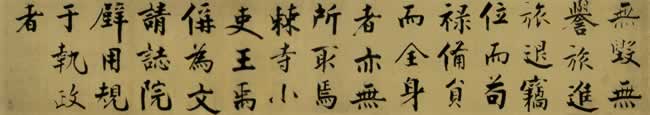 無毀無
譽旅進
旅退竊
位而苟
禄備貟
而全身
者亦無
所取焉
棘寺小
吏王禹
偁為文
請誌院
壁用規
于執政
者